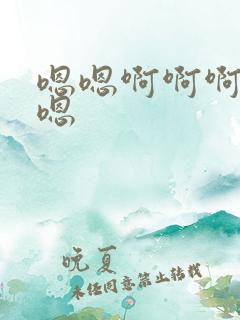 嗯嗯啊啊啊
嗯
晚夏
未经同意禁止转载